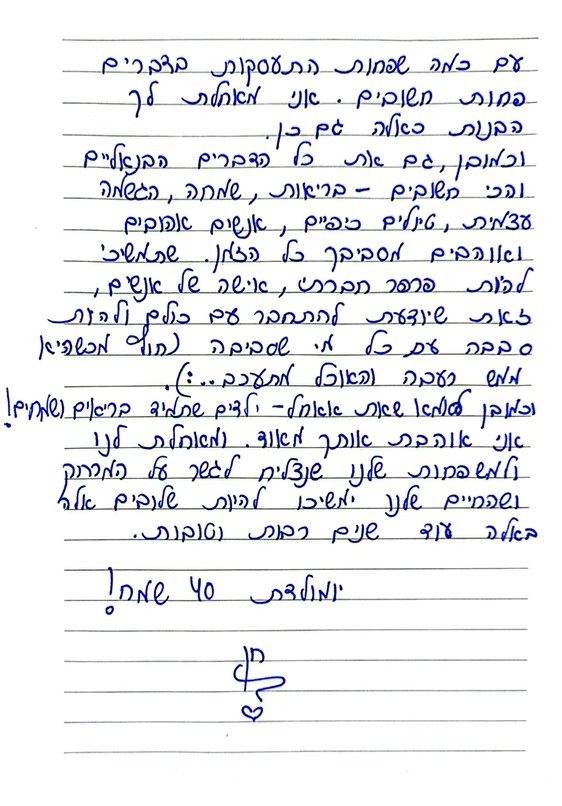 עם כמה שפחות התעסקות בדברים
פחות חשובים. אני מאחלת לך
הבנות כאלה גם כן.
וכמובן, גם את כל הדברים הבנאליים
והכי חשובים – בריאות, שמחה, הגשמה
עצמית, טיולים כיפיים, אנשים אהובים
ואוהבים מסביבך כל הזמן. שתמשיכי
להיות פרפר חברתי, אישה של אנשים,
זאת שיודעת להתחבר עם כולם ולהיות
סבבה עם כל מי שסביבה (חוץ מכשהיא
ממש רעבה והאוכל מתעכב..:).
וכמובן שאת אאחל – ילדים שתמיד בריאים ושמחים!
אני אוהבת אותך מאוד. ומאחלת לנו
ולמשפחות שלנו שנצליח לגשר על המרחק
ושהחיים שלנו ימשיכו להיות שלובים אלה
באלה עוד שנים רבות וטובות.
יומולדת 40 שמח!
חן